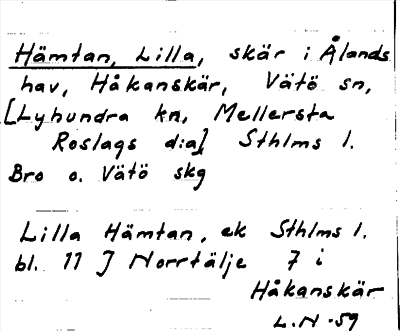 Hämtan, Lilla, skär i Ålands
hav, Håkanskär, Vätö sn,
[Lyhundra kn, Mellersta
Roslags d:a] Sthlms l.
Bro o. Vätö skg
Lilla Hämtan, ek Sthlms l.
bl. 11 J Norrtälje 7 i
Håkanskär
L.N -59